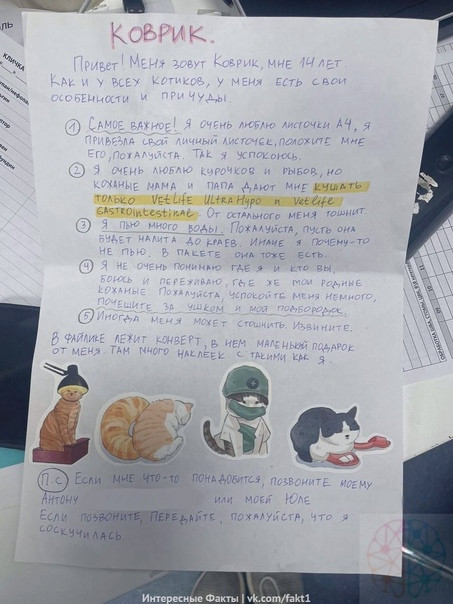 КОВРИК.
Привет! Меня зовут Коврик, мне 14 лет.
Как и у всех котиков, у меня есть свои
особенности и причуды.
1 Самое важное! Я очень люблю листочки А4, я
привезла свой личный листочек, положите мне
его, пожалуйста. Так я успокоюсь.
2 Я очень люблю курочков и рыбов, но
кожаные мама и папа дают мне кушать
только Vetlife UltraHypo и Vetlife
Gastrointestinal. От остального меня тошнит.
3 Я пью много воды. Пожалуйста, пусть она
будет налита до краев. Иначе я почему-то
не пью. В пакете она тоже есть.
4 Я не очень понимаю где я и кто вы,
боюсь и переживаю, где же мои родные
кожаные. Пожалуйста, успокойте меня немного,
почешите за ушком и мой подбородок.
5 Иногда меня может стошнить. Извините.
В файлике лежит конверт, в нем маленький подарок
от меня. Там много наклеек с такими как я.
П.С Если мне что-то понадобится, позвоните моему
Антону или моей Юле
Если позвоните, передайте, пожалуйста, что я
соскучилась.
Интересные Факты | vk.com/fakt1